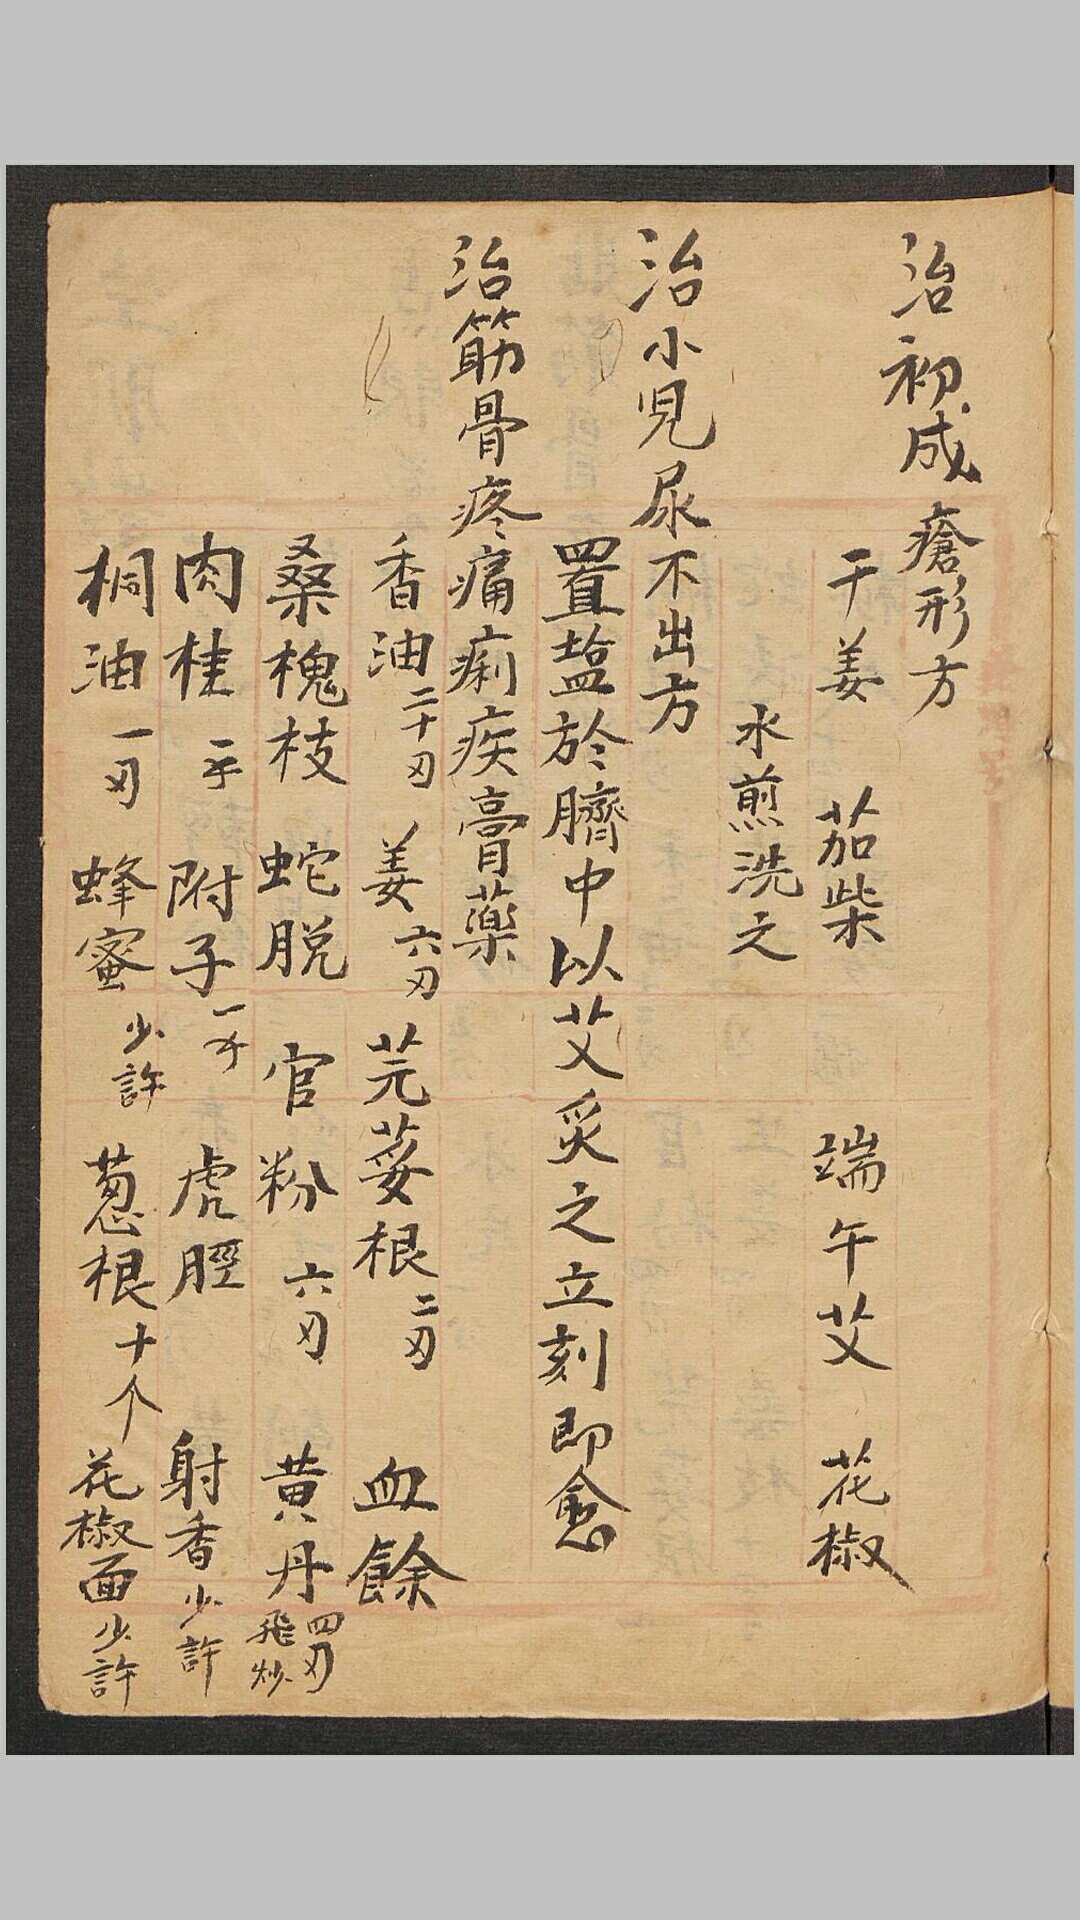 治初成瘡形方
干姜 茄柴 端午艾 花椒
水煎洗之
治小児尿不出方
置盐於臍中以艾炙之立刻即愈
治筋骨疼痛痢疾膏藥
香油二十刃 姜六刃 芫荽根二刃 血餘
桑槐枝 蛇脱 官粉六刃 黄丹四刃飛炒
肉桂二 附子一 虎脛 射香少許
桐油一刃 蜂蜜少許 葱根十个 花椒面少許